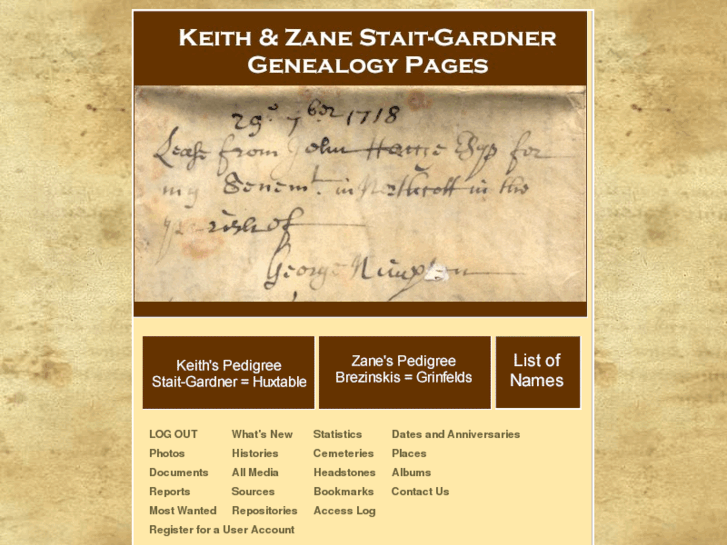 KEITH & ZANE STAIT-GARDNER
GENEALOGY PAGES
29th 7ber 1718
Lease from John Esqr for
my Tenemt. in in the
parish of
George
Keith's Pedigree
Stait-Gardner = Huxtable
Zane's Pedigree
Brezinskis = Grinfelds
List of
Names
LOG OUT What's New Statistics Dates and Anniversaries
Photos Histories Cemeteries Places
Documents All Media Headstones Albums
Reports Sources Bookmarks Contact Us
Most Wanted Repositories Access Log
Register for a User Account